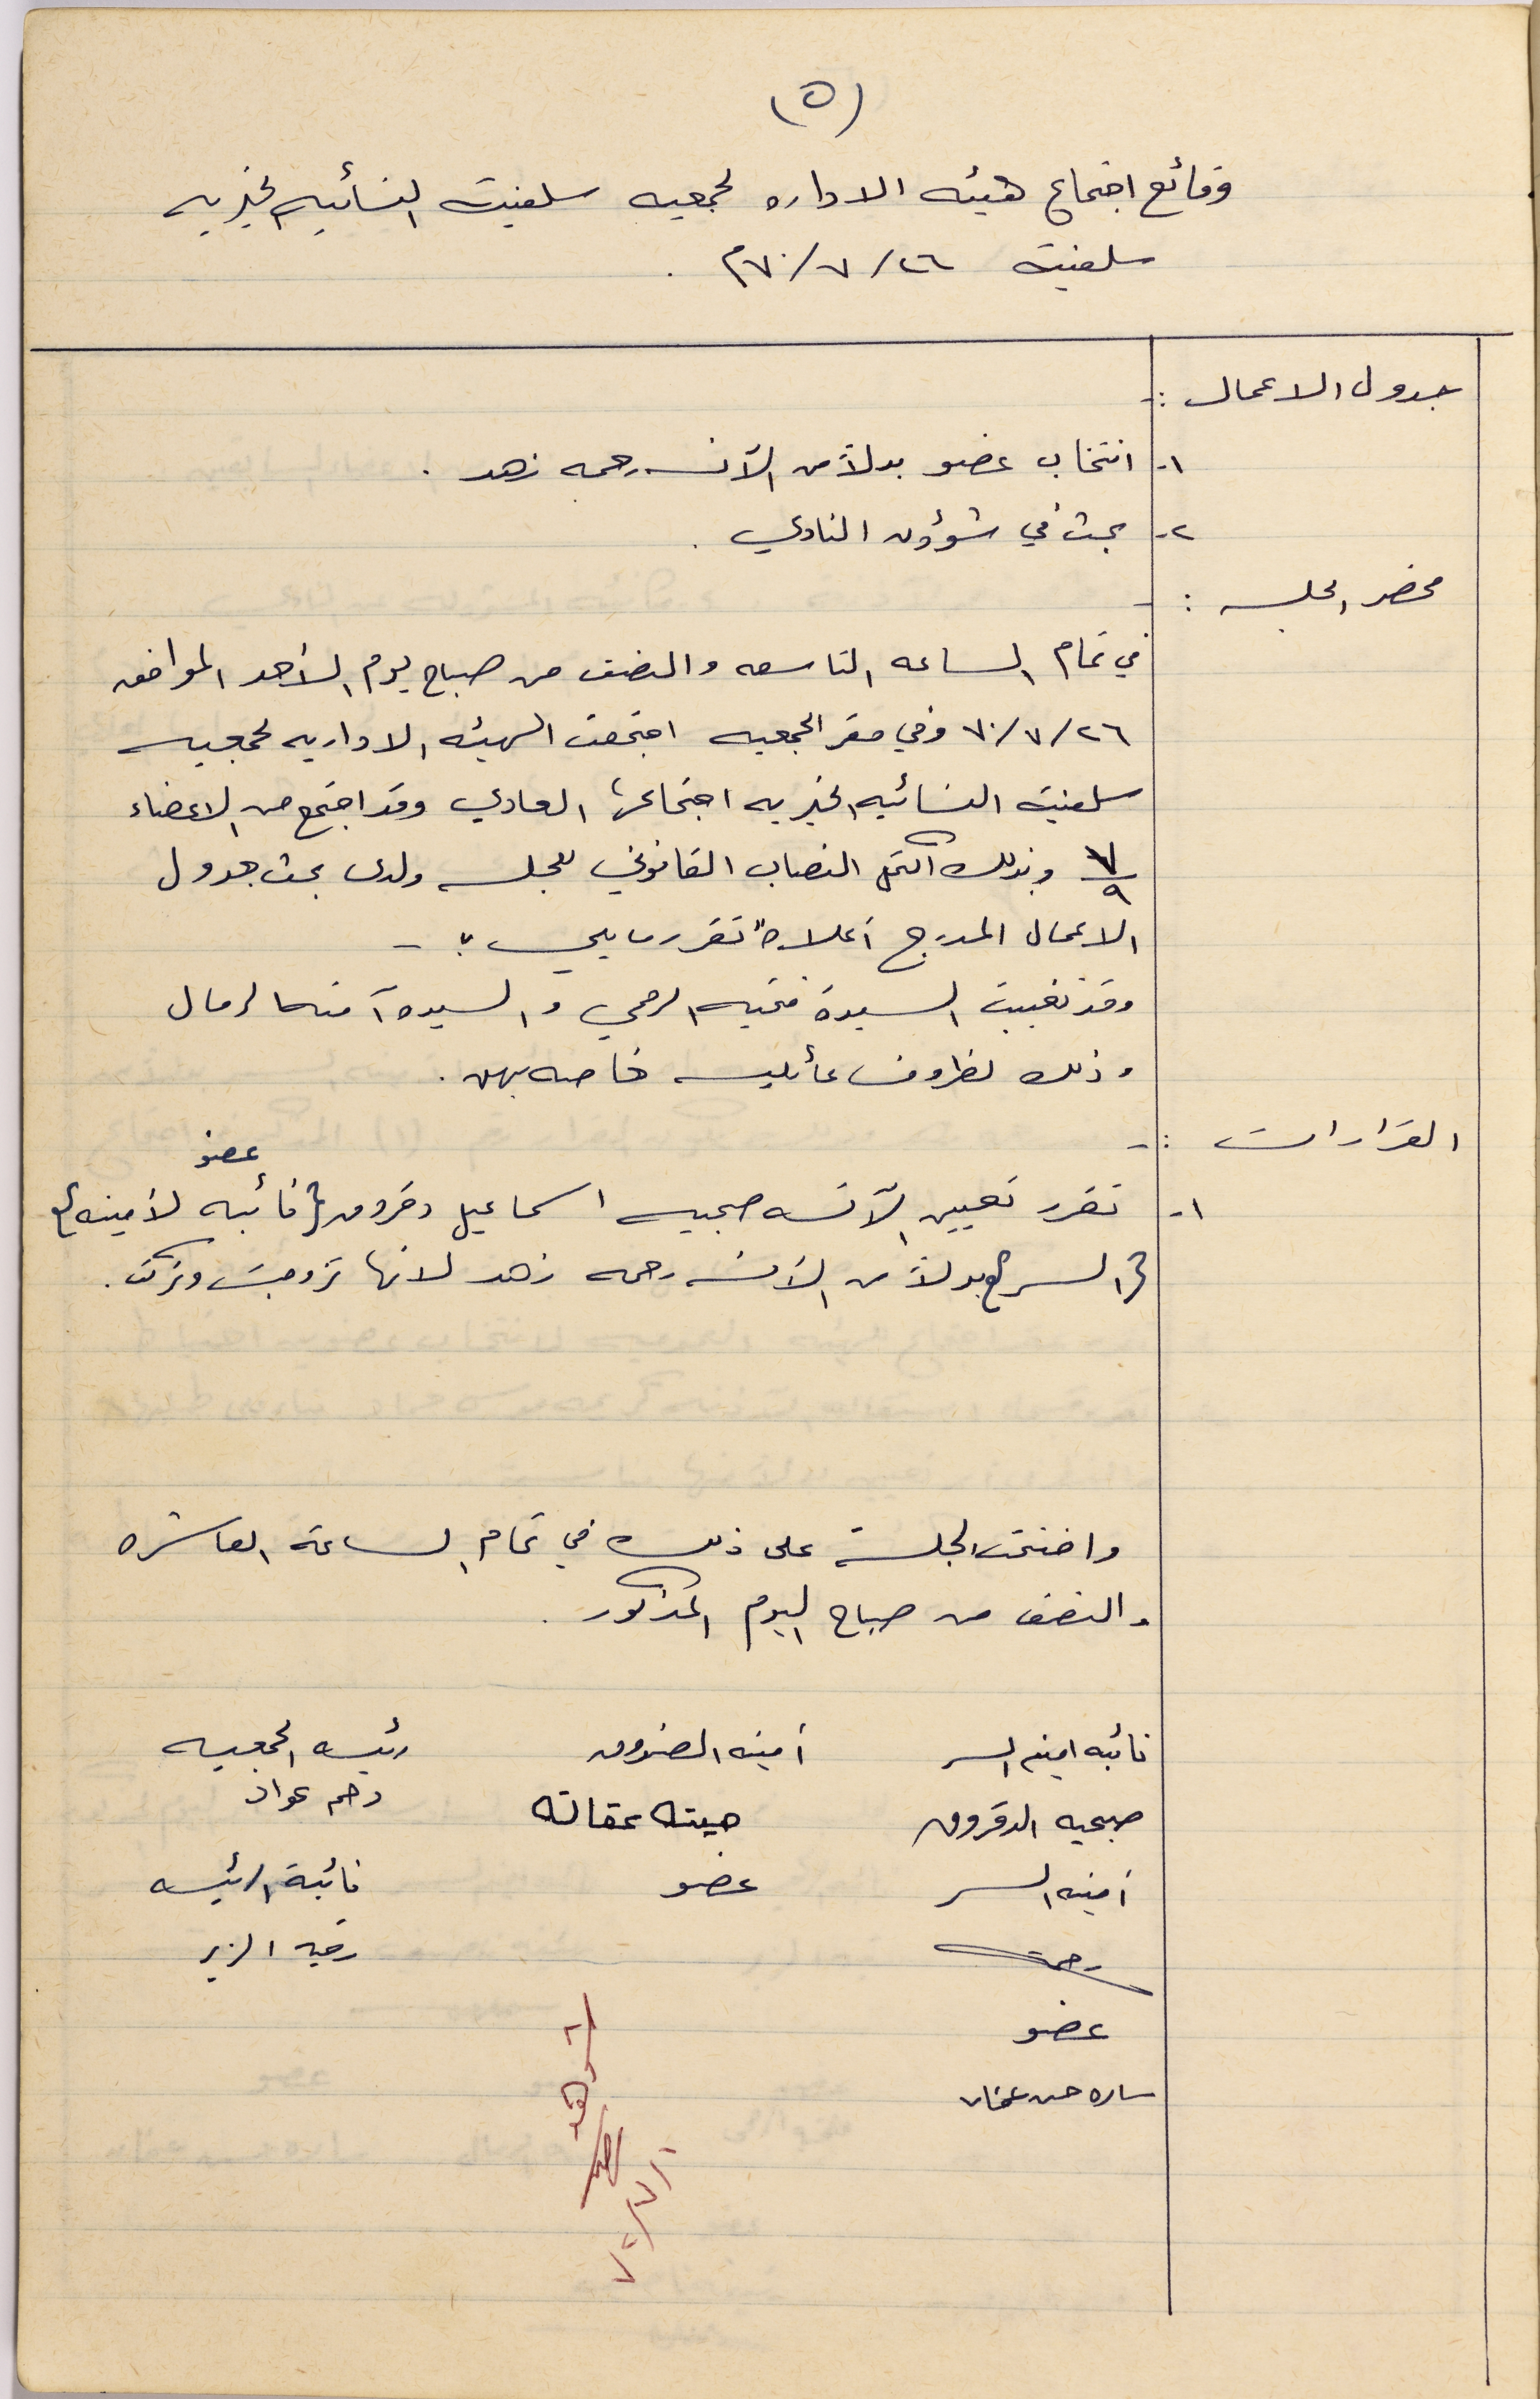 (٥)
وقائع اجتماع هيئه الاداره لجمعيه سلفيت النسائيه الخيريه
سلفيت ٢٦/٧/٧٠م.
جدول الاعمال :-
١- انتخاب عضو بدلاً من الآنسه رحمه زهد .
٢- بحث في شؤون النادي .
محضر الجلسه : -
في تمام الساعه التاسعه والنصف من صباح يوم الأحد الموافق
٢٦/٧/٧٠ وفي مقر الجمعيه اجتمعت الهيئه الاداريه لجمعيه
سلفيت النسائيه الخيريه اجتماعها العادي وقد اجتمع من الاعضاء
٧/٩ وبذلك اكتمل النصاب القانوني للجلسه ولدى بحث جدول
الاعمال المدرج أعلاه تقرر ما يلي :-
وقد تغيبت السيدة فتحيه الرحمي و السيدة آمنه الرمال
وذلك لظروف عائليه خاصه بهن .
القرارات :-
عضو
١- تقرر تعيين الآنسه صبحيه اسماعيل دقروق (نائبه لأمينه)
(السر) بدلاً من الآنسه رحمه زهد لانها تزوجت وتركت .
واختتمت الجلسة على ذلك في تمام الساعة العاشره
والنصف من صباح اليوم المذكور .
نائبه امينه السر أمينه الصندوق رئيسه الجمعيه
صبحيه الدقروق هيته عقانه
عواد
أمينه السر عضو نائبة الرئيسه
رحمة رقيه الزير
عضو
ساره حسن عفانه